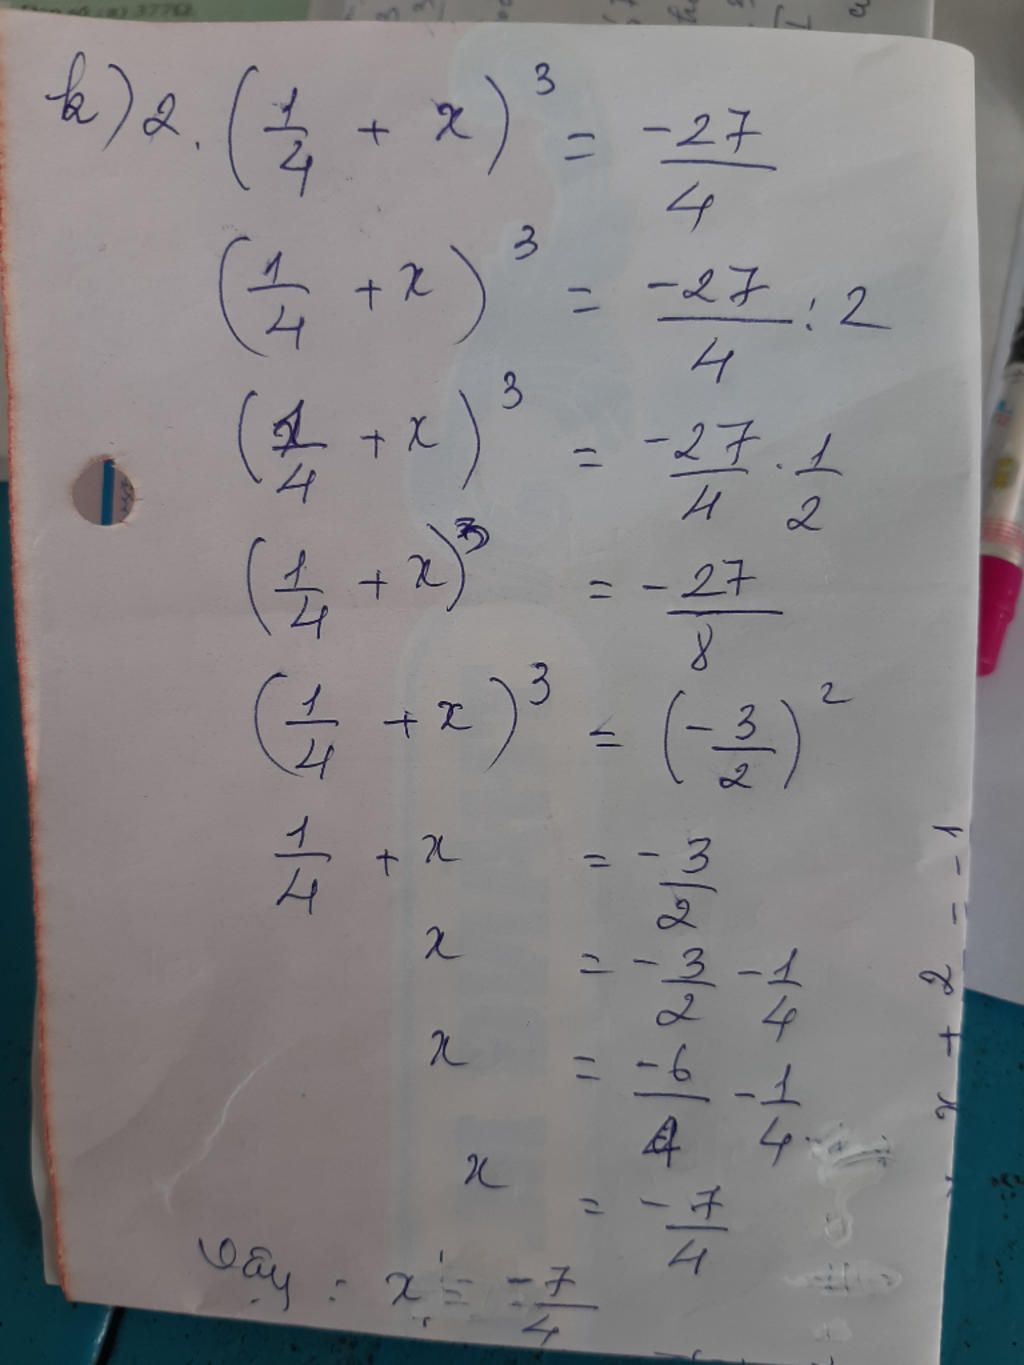 k) 2. (1/4 + x)^3 = -27/4
(1/4 + x)^3 = -27/4 : 2
(1/4 + x)^3 = -27/4 . 1/2
(1/4 + x)^3 = -27/8
(1/4 + x)^3 = (-3/2)^2
1/4 + x = -3/2
x = -3/2 - 1/4
x = -6/4 - 1/4
x = -7/4
Vậy : x = -7/4
x + 2 = -1